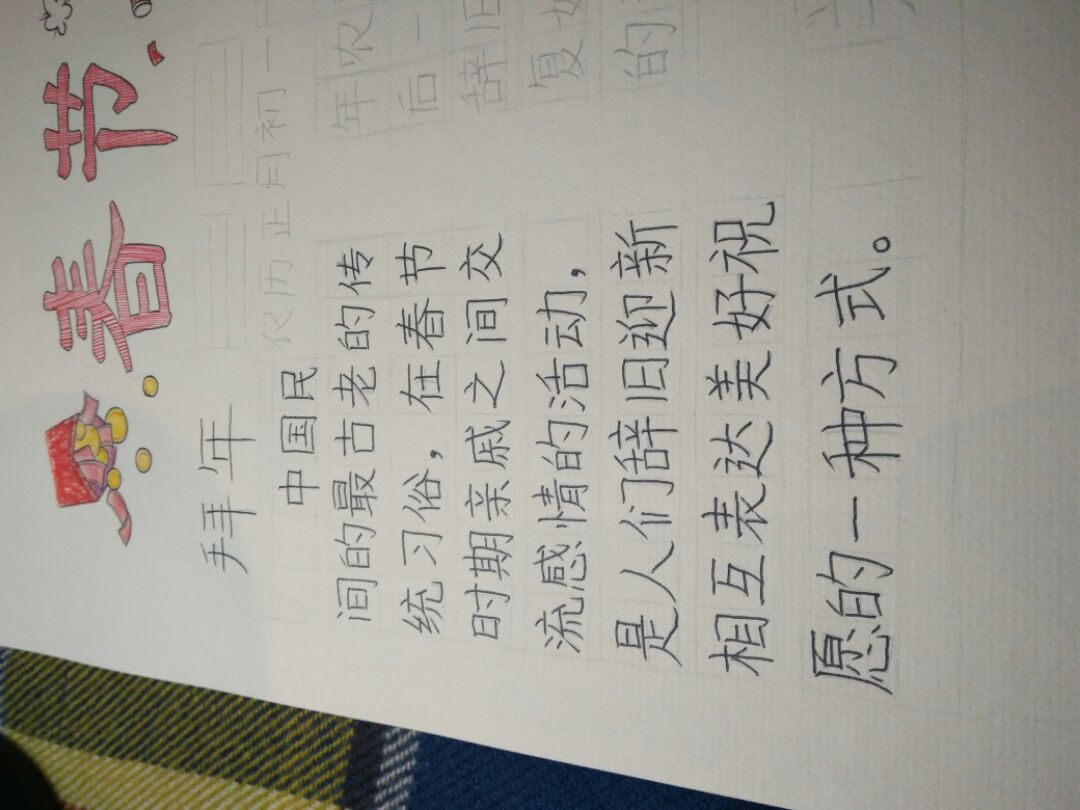 春节
拜年
中国民
间的最古老的传
统习俗，在春节
时期亲戚之间交
流感情的活动，
是人们辞旧迎新
相互表达美好祝
愿的一种方式。
农历正月初一
年农
后一
辞旧
复如
的